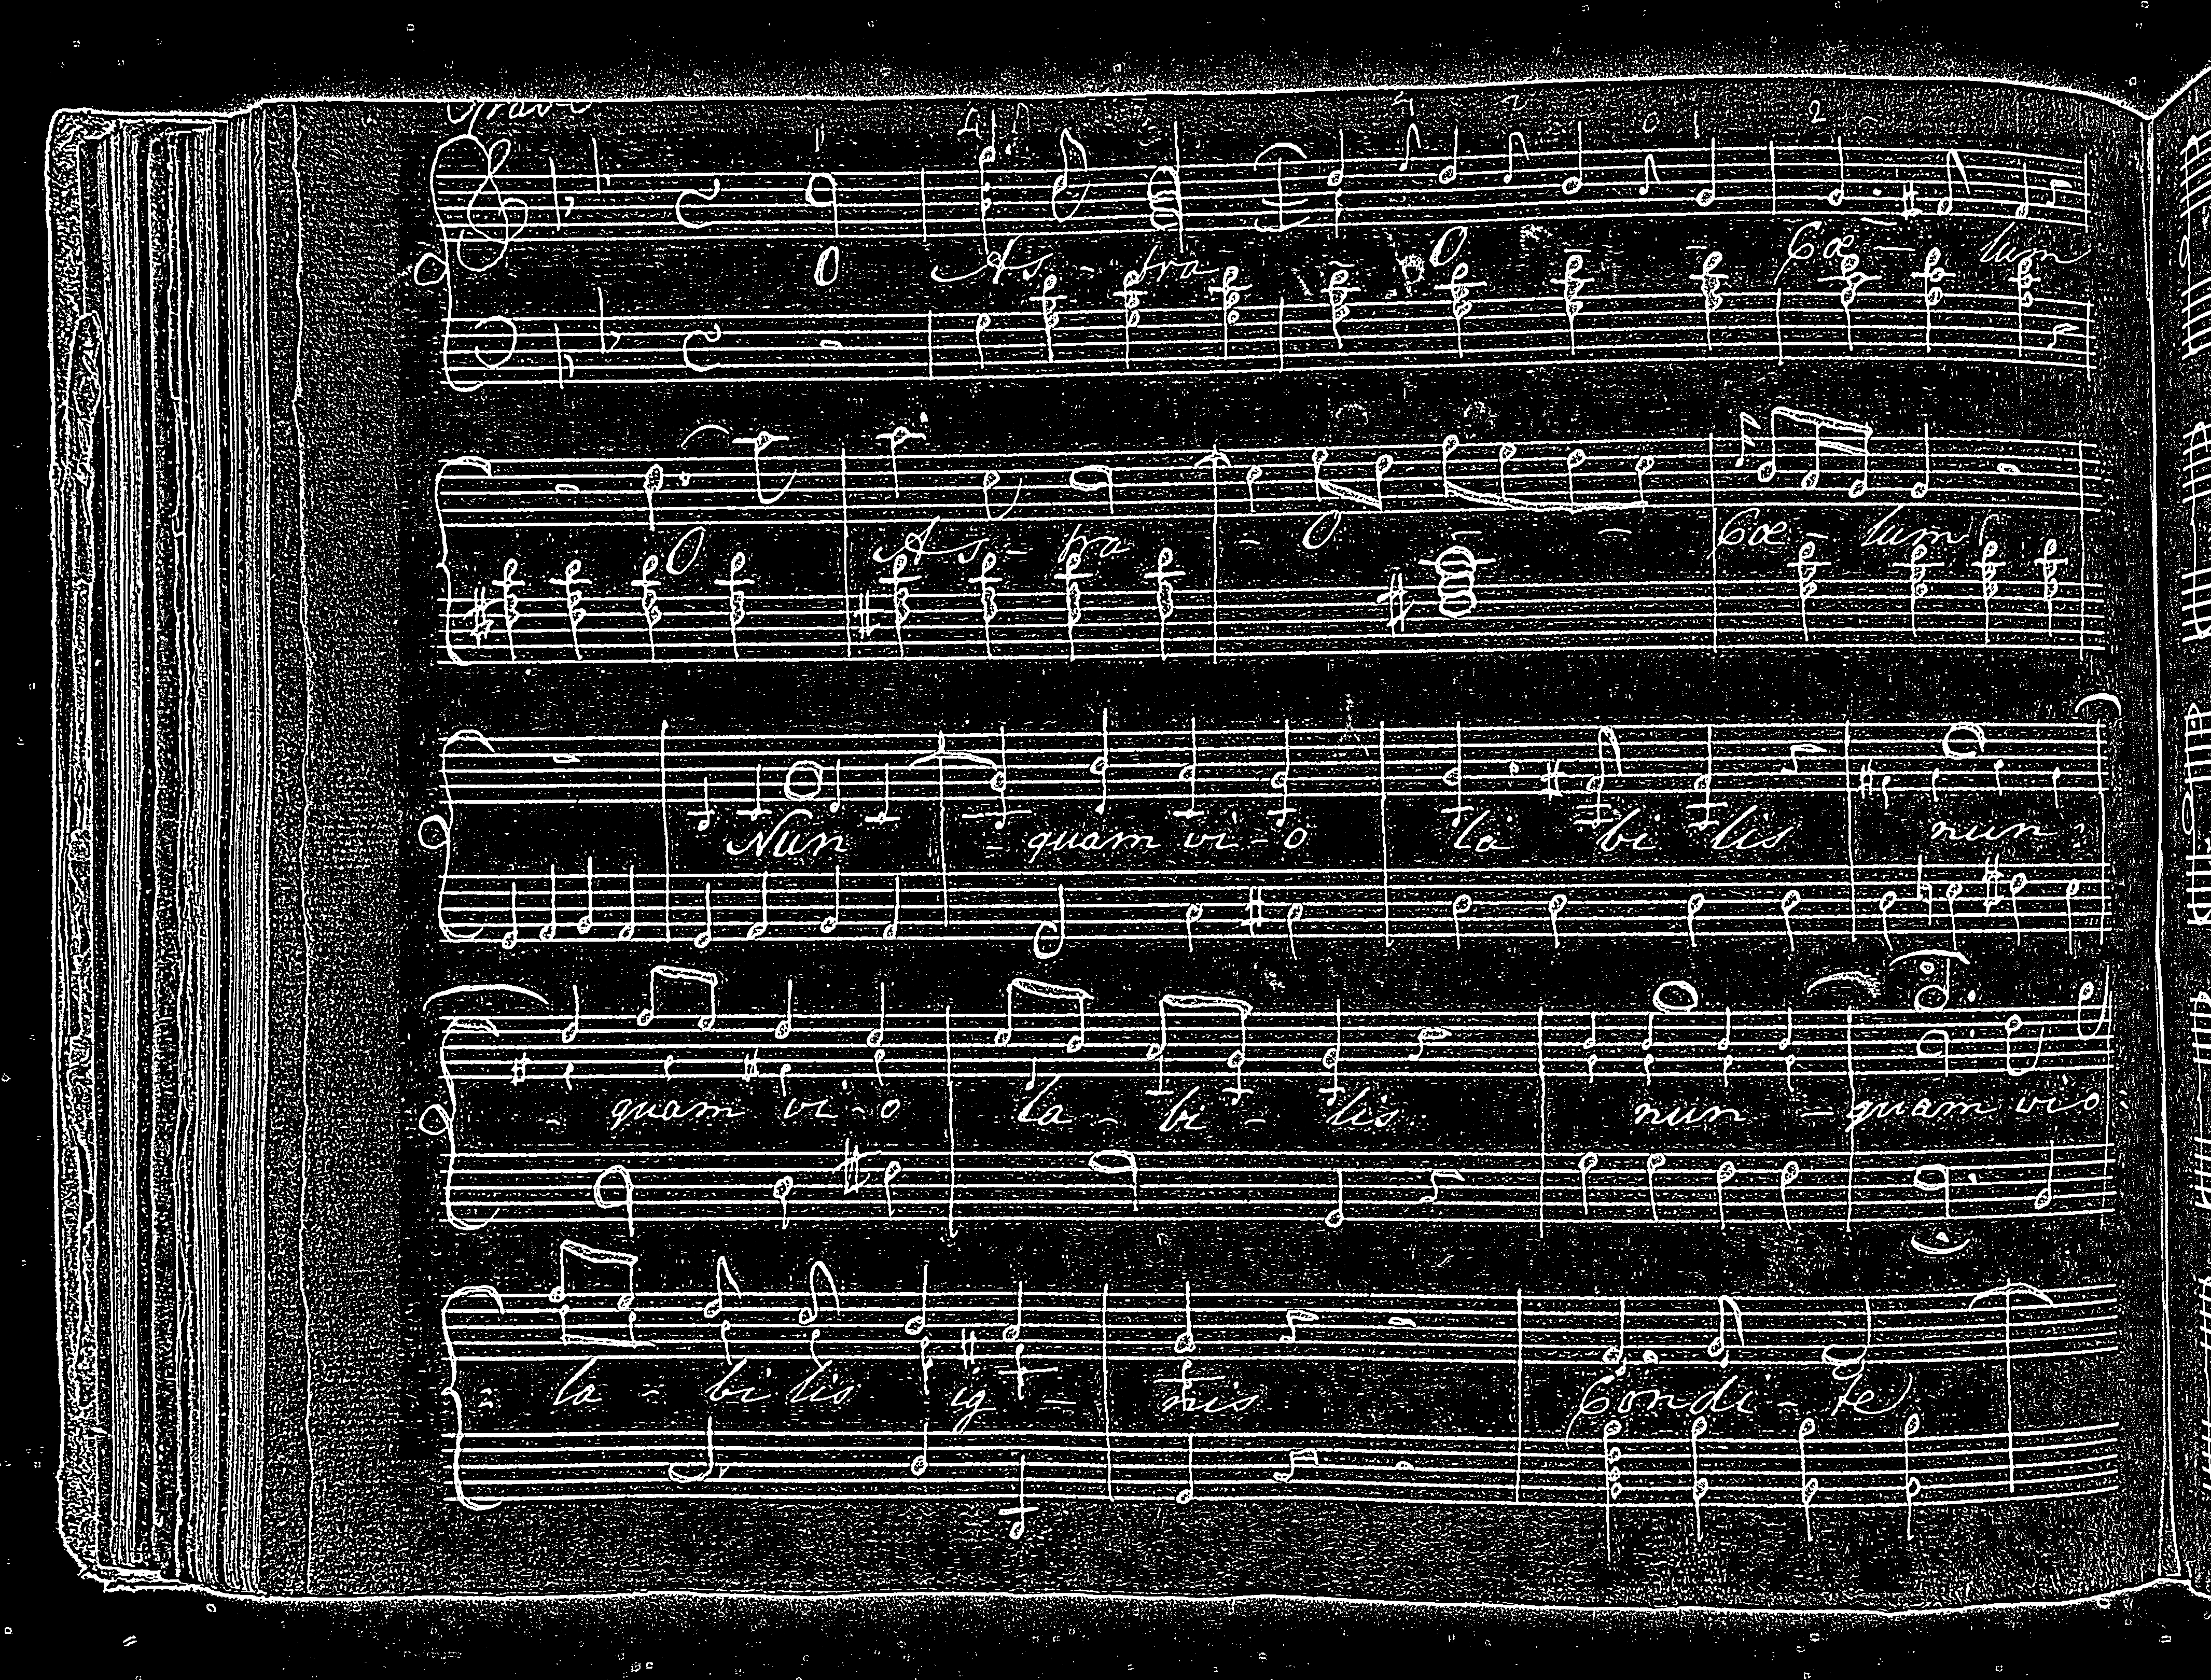 Grave
O As - tra - O - - Cœ - lum
O As - tra - O - - Cœ - lum
Nun - quam vi - o la bi lis nun -
- quam vi - o la - bi - lis nun - quam vio
- la - bi lis ig - nis Condi - te